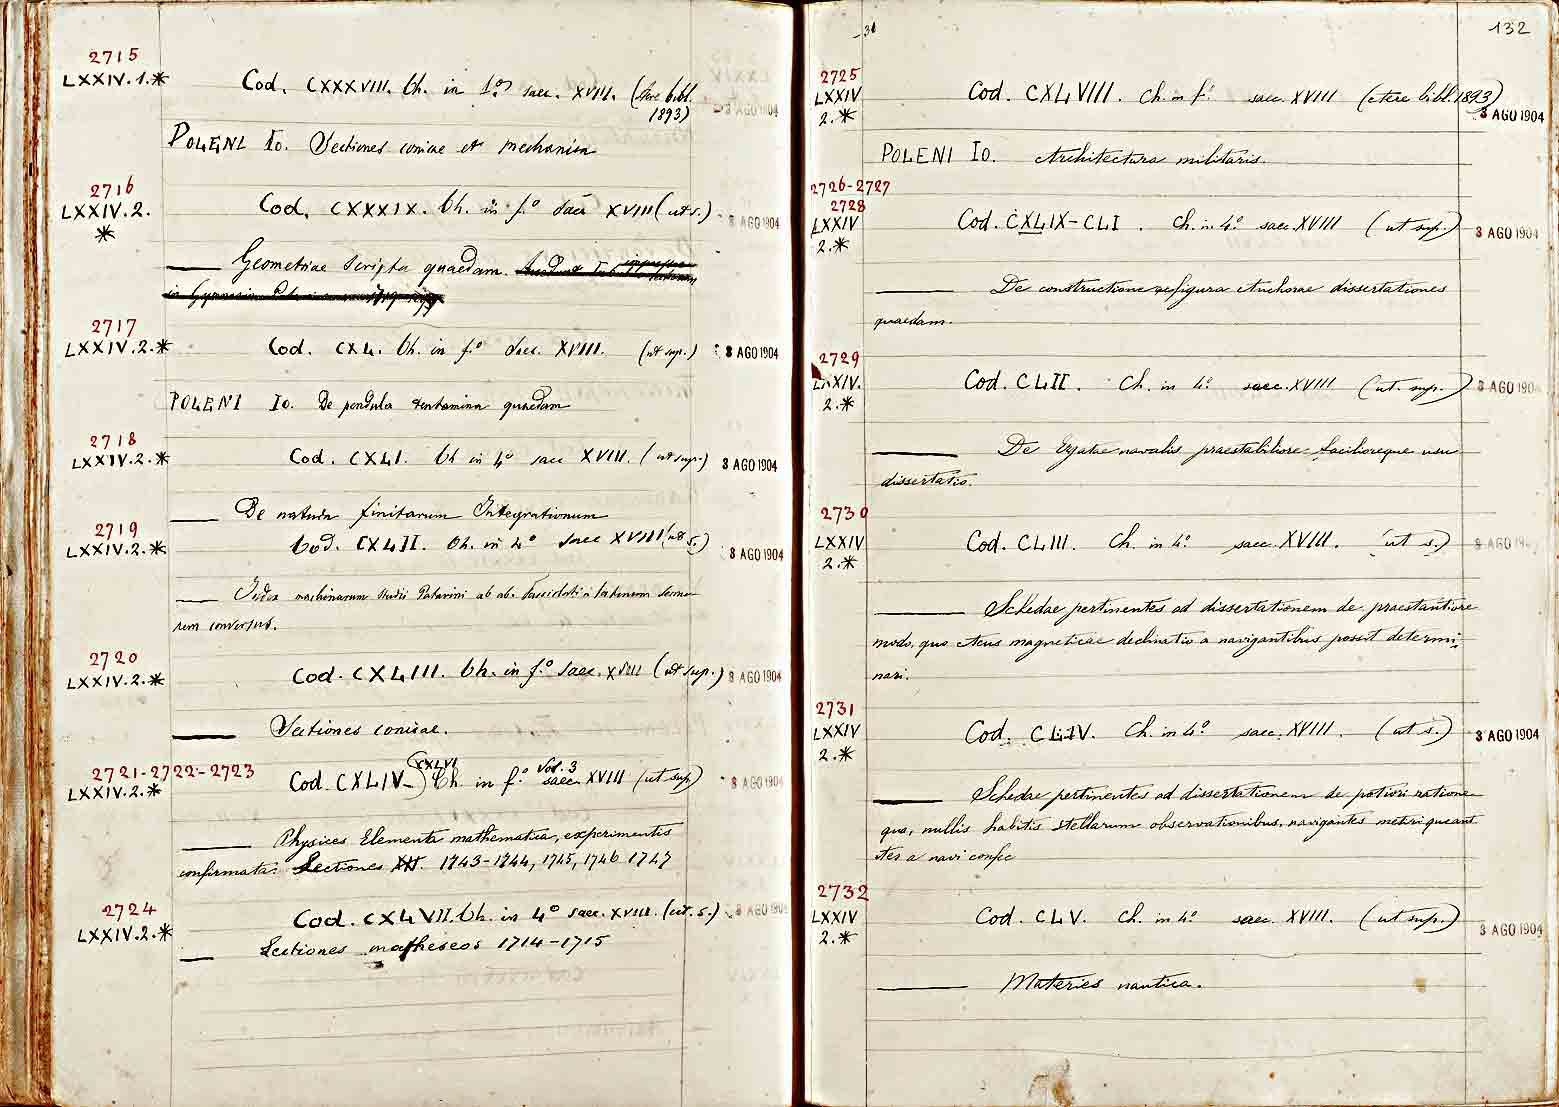 2715
LXXIV.1.* Cod. CXXXVIII. Ch. in f.º saec. XVIII. (Aere bibl.
1893) 3 AGO 1904
POLENI Io. Sectiones conicae et mechanica
2716
LXXIV.2. Cod. CXXXIX. Ch. in f.º saec XVIII (ut s.) 3 AGO 1904
*
Geometriae scripta quaedam.
in Gymnasio
2717
LXXIV.2.* Cod. CXL. Ch. in f.º saec. XVIII. (ut sup.) 3 AGO 1904
POLENI Io. De pendula tentamina quaedam
2718
LXXIV.2.* Cod. CXLI. Ch in 4º saec XVIII. (ut sup.) 3 AGO 1904
De natura finitarum Integrationum
2719
LXXIV.2.* Cod. CXLII. Ch. in 4º saec XVIII (ut s.) 3 AGO 1904
Index machinarum studii Patavini ab ab. Facciolati in latinum sermo
nem conversus.
2720
LXXIV.2.* Cod. CXLIII. Ch. in f.º saec. XVIII (ut sup.) 3 AGO 1904
Sectiones conicae.
2721-2722-2723
LXXIV.2.* Cod. CXLIV-CXLVI Ch in f.º Vol. 3 saec XVIII (ut sup) 3 AGO 1904
Physices Elementa mathematica, experimentis
confirmata. Lectiones 1743-1744, 1745, 1746 1747
2724
LXXIV.2.* Cod. CXLVII. Ch. in 4º saec. XVIII. (ut. s.) 3 AGO 1904
Lectiones matheseos 1714-1715
132
2725
LXXIV Cod. CXLVIII. Ch. in f.º saec. XVIII (Aere bibl. 1893)
2.* 3 AGO 1904
POLENI Io. Architectura militaris.
2726-2727
2728
LXXIV Cod. CXLIX-CLI. Ch. in 4º saec. XVIII (ut sup.) 3 AGO 1904
2.*
De constructione et figura Anchorae dissertationes
quaedam.
2729
LXXIV. Cod. CLII. Ch. in 4º saec. XVIII (ut. sup.) 3 AGO 1904
2.*
De Ergatae navalis praestabiliore facilioreque usu
dissertatio.
2730
LXXIV Cod. CLIII. Ch. in 4º saec. XVIII. (ut s.) 3 AGO 1904
2.*
Schedae pertinentes ad dissertationem de praestantiore
modo, quo Acus magneticae declinatio a navigantibus possit determi-
nari.
2731
LXXIV Cod. CLIV. Ch. in 4º saec. XVIII. (ut s.) 3 AGO 1904
2.*
Schedae pertinentes ad dissertationem de potiori ratione
qua, nullis habitis stellarum observationibus, navigantes metiri queant
iter a navi confec
2732
LXXIV Cod. CLV. Ch. in 4º saec. XVIII. (ut sup.) 3 AGO 1904
2.*
Materies nautica.